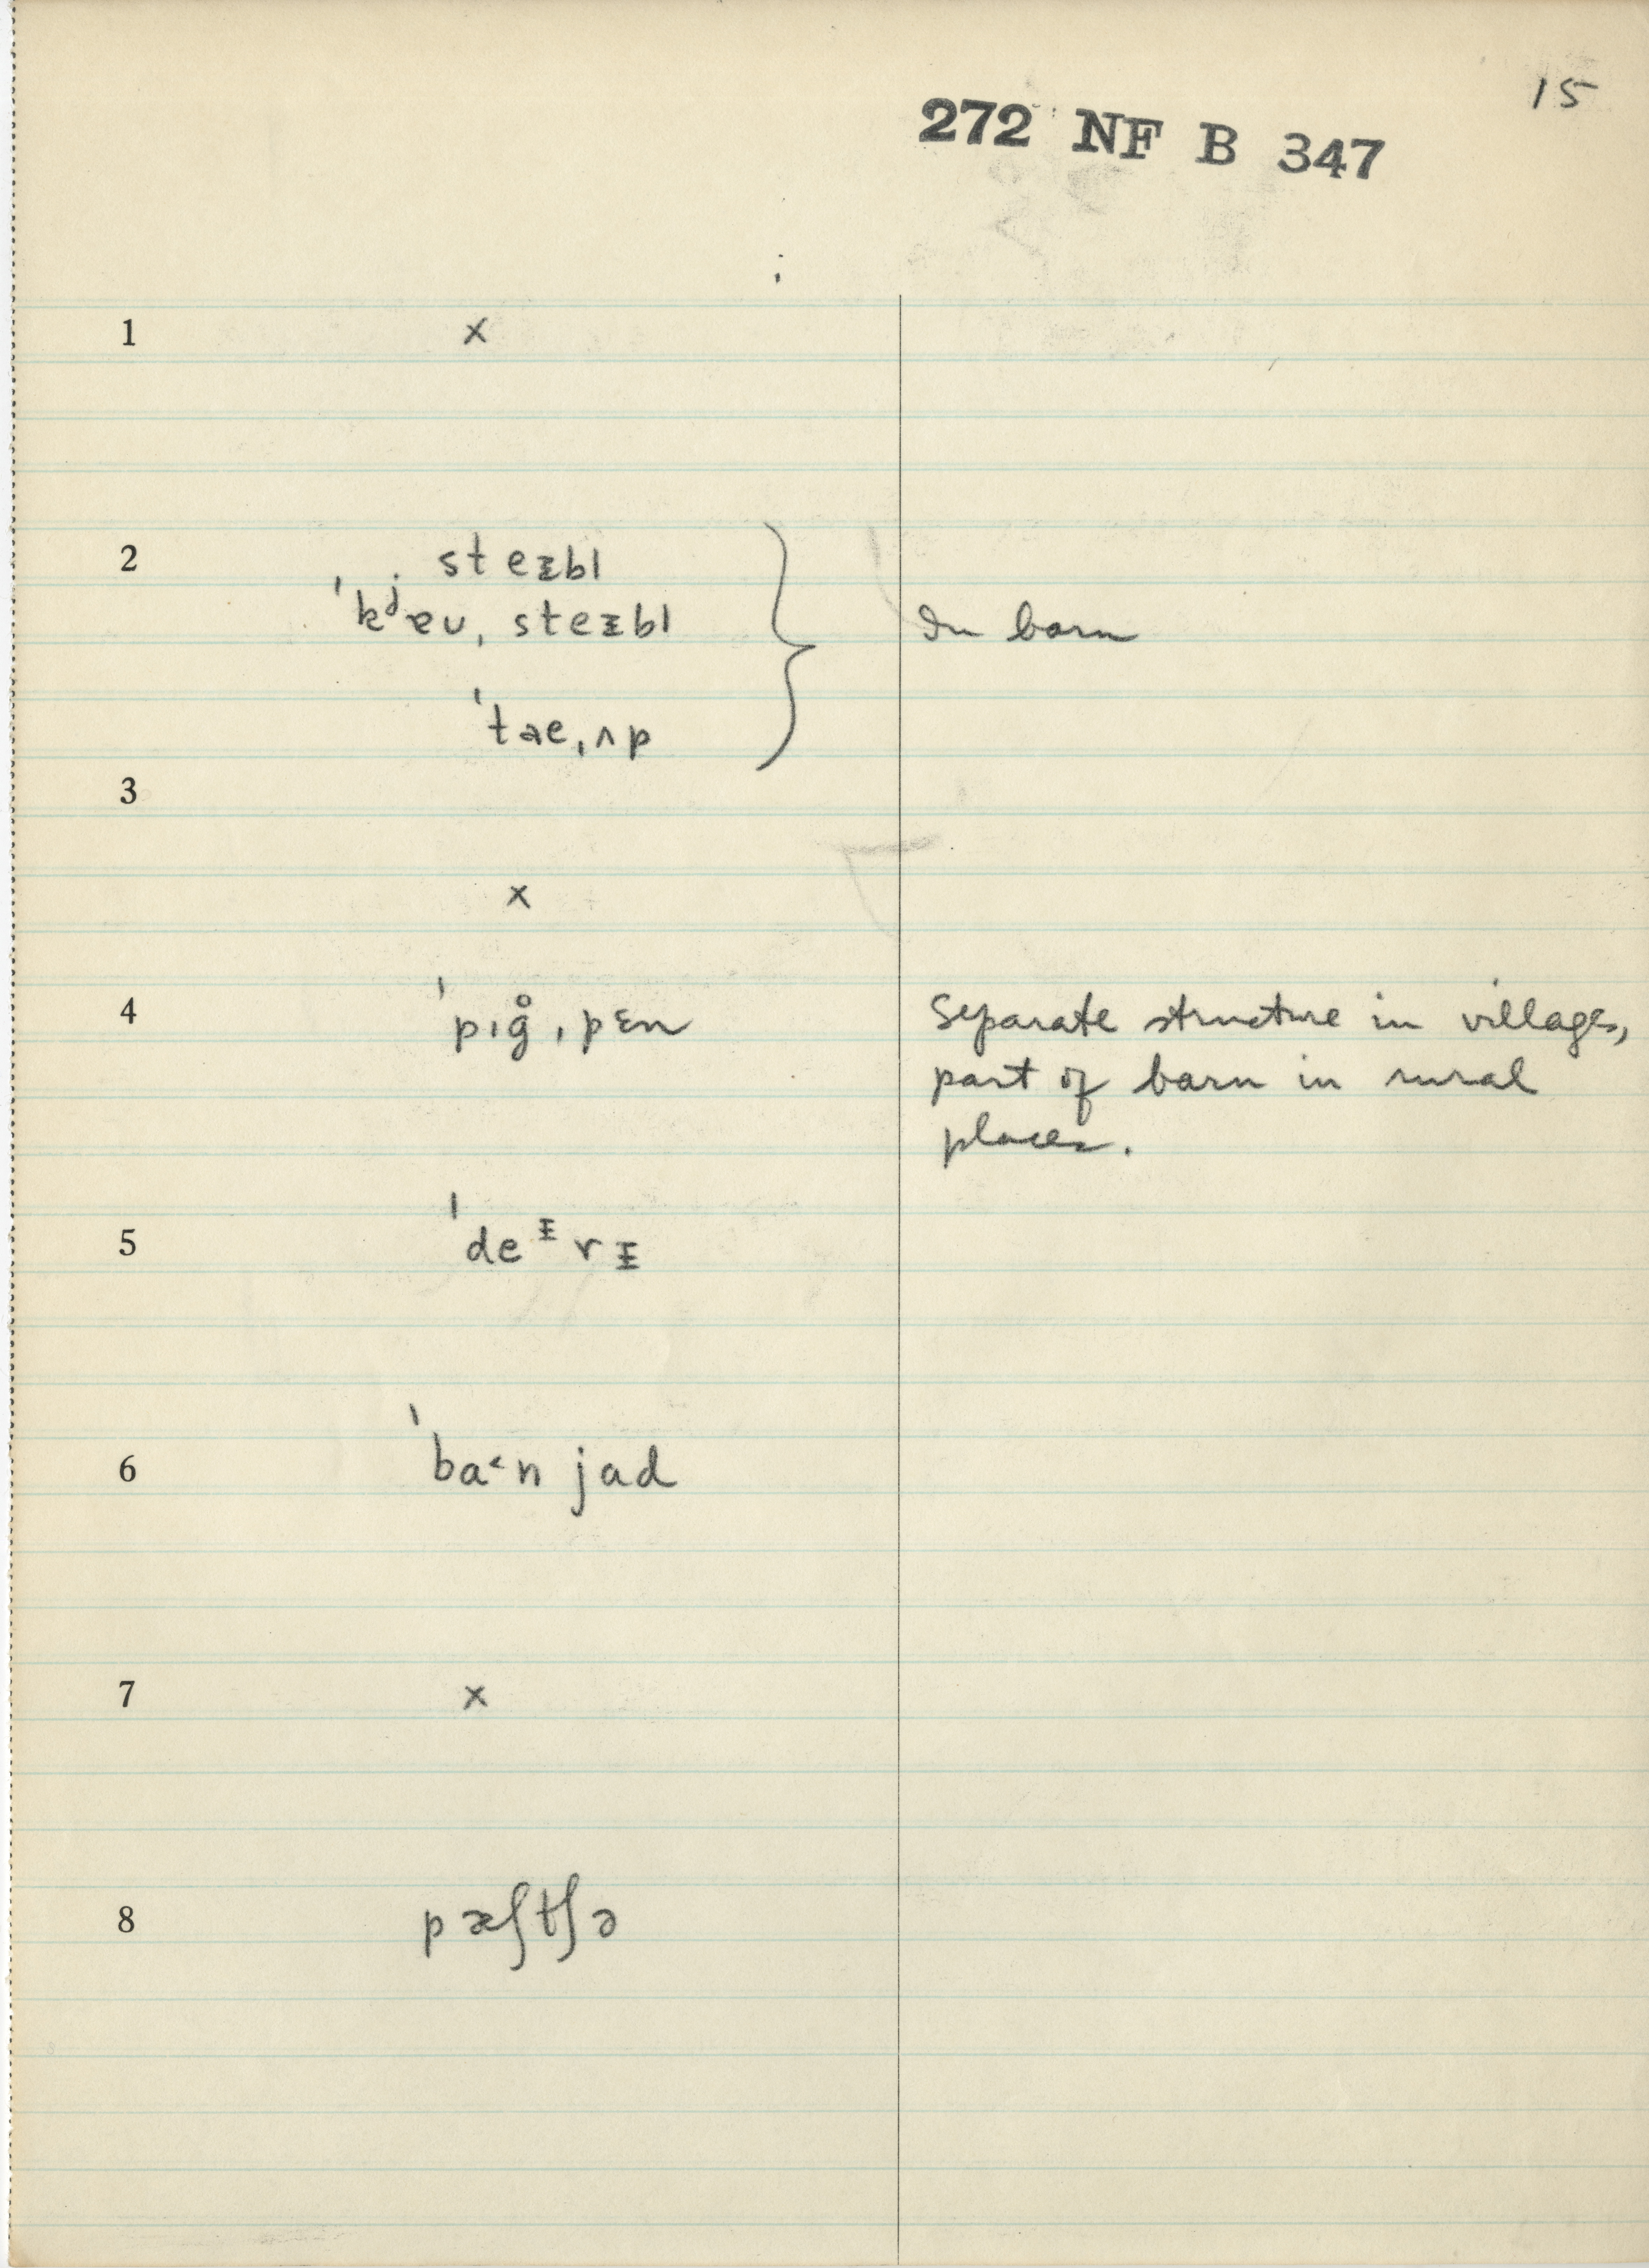 15
272 NF B 347
1 x
2 steᵻbl
ˈkʲɐʊˌsteᵻbl } In barn
ˈtaeˌʌp
3
x
4 ˈpıg̊ˌpɛn Separate structure in villages,
part of barn in rural
places.
5 ˈdeᶧrᵻ
6 ˈba˂n jad
7 x
8 pæʃtʃə